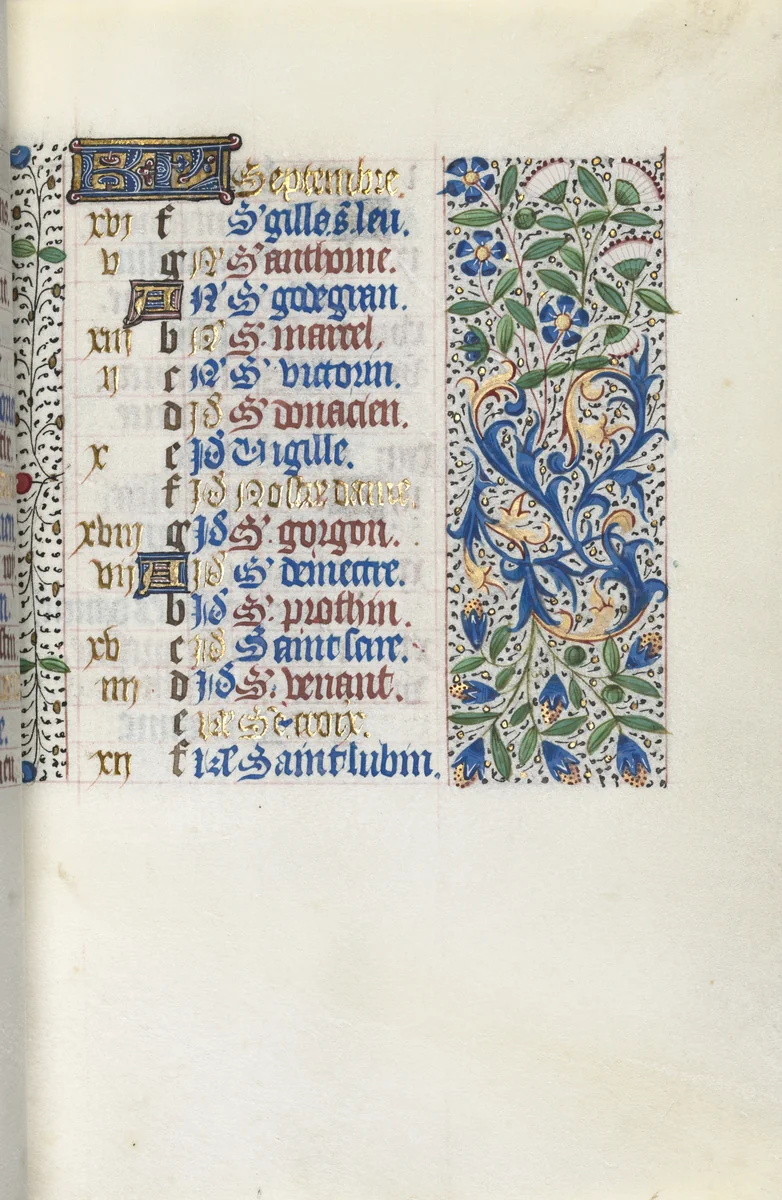 KL Septembre.
xvj f S' gilles s. leu.
v g N' S' anthoine.
A N' S' godegran.
xiij b N' S'. marcel.
ij c N' S' victorin.
d Jd S' donacien.
x e Jd Vigille.
f Jd Nostre dame.
xviij g Jd S'. gorgon.
vij A Jd S' demectre.
b Jd S'. prothin.
xv c Jd Saint sare.
iiij d Jd S'. venant.
e kl S'te croix.
xij f kl Saint lubin.